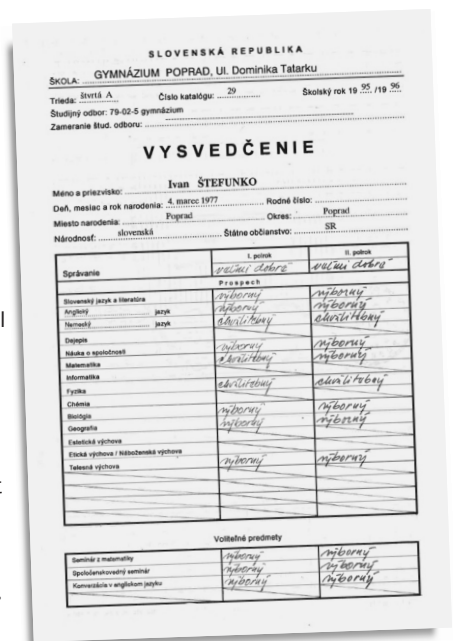 SLOVENSKÁ REPUBLIKA
ŠKOLA: GYMNÁZIUM POPRAD, Ul. Dominika Tatarku
Trieda: štvrtá A Číslo katalógu: 29 Školský rok 19 95 /19 96
Študijný odbor: 79-02-5 gymnázium
Zameranie štud. odboru:
VYSVEDČENIE
Meno a priezvisko: Ivan ŠTEFUNKO
Deň, mesiac a rok narodenia: 4. marec 1977 Rodné číslo:
Miesto narodenia: Poprad Okres: Poprad
Národnosť: slovenská Štátne občianstvo: SR
I. polrok II. polrok
Správanie veľmi dobré veľmi dobré
Prospech
Slovenský jazyk a literatúra výborný výborný
Anglický jazyk výborný výborný
Nemecký jazyk chválitebný chválitebný
Dejepis
Náuka o spoločnosti výborný výborný
Matematika chválitebný výborný
Informatika
Fyzika chválitebný chválitebný
Chémia
Biológia výborný výborný
Geografia výborný výborný
Estetická výchova
Etická výchova / Náboženská výchova
Telesná výchova výborný výborný
Voliteľné predmety
Seminár z matematiky výborný výborný
Spoločenskovedný seminár výborný výborný
Konverzácia v anglickom jazyku výborný výborný